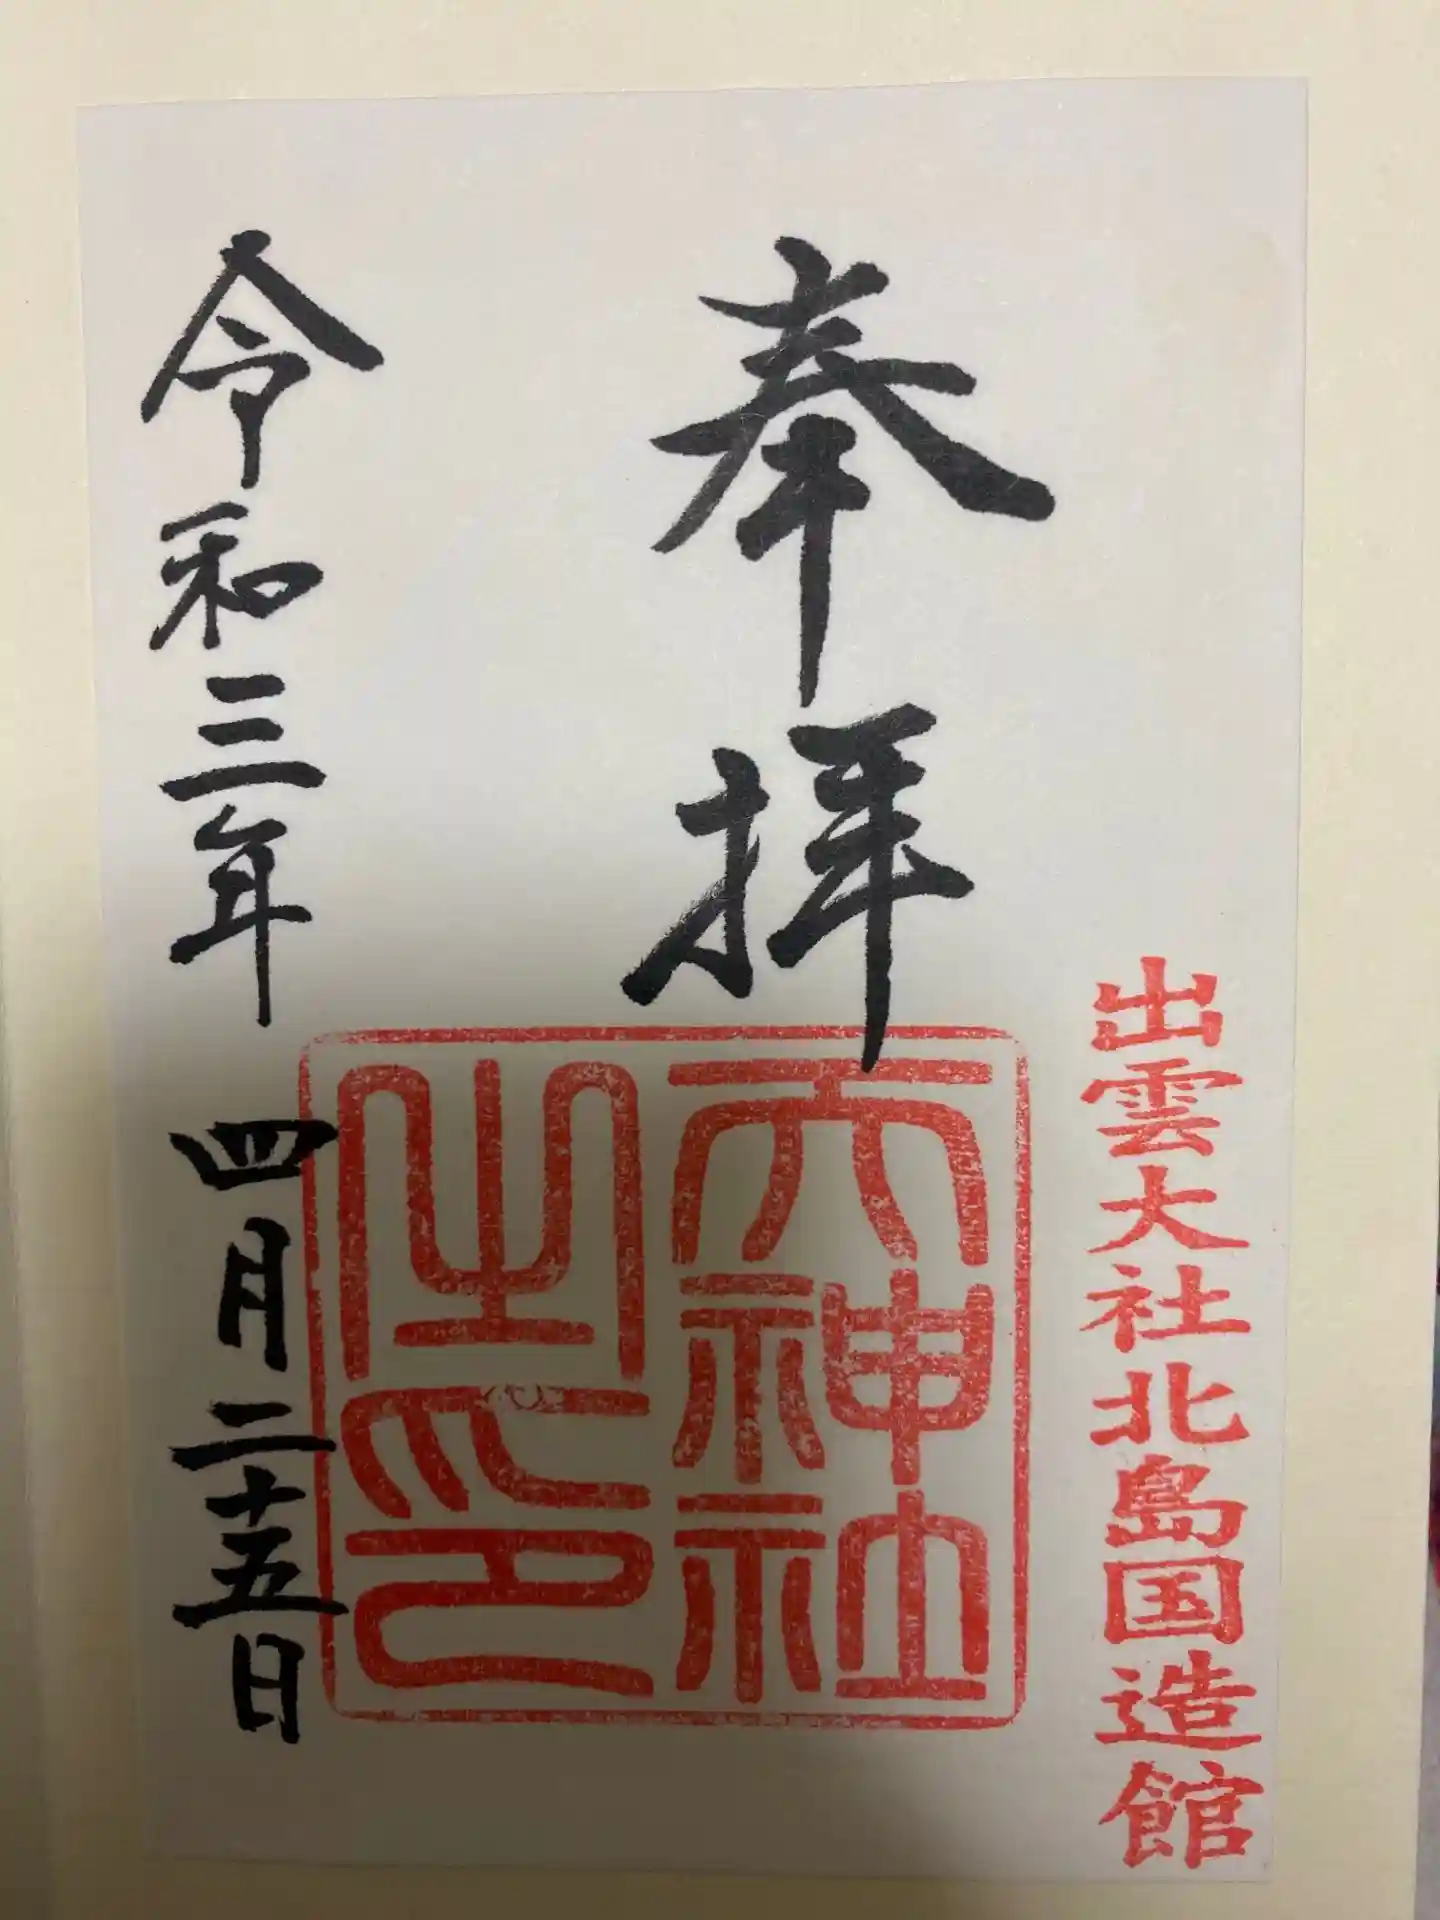 奉拝
出雲大社北島国造館
天神社
之印
令和三年四月二十五日